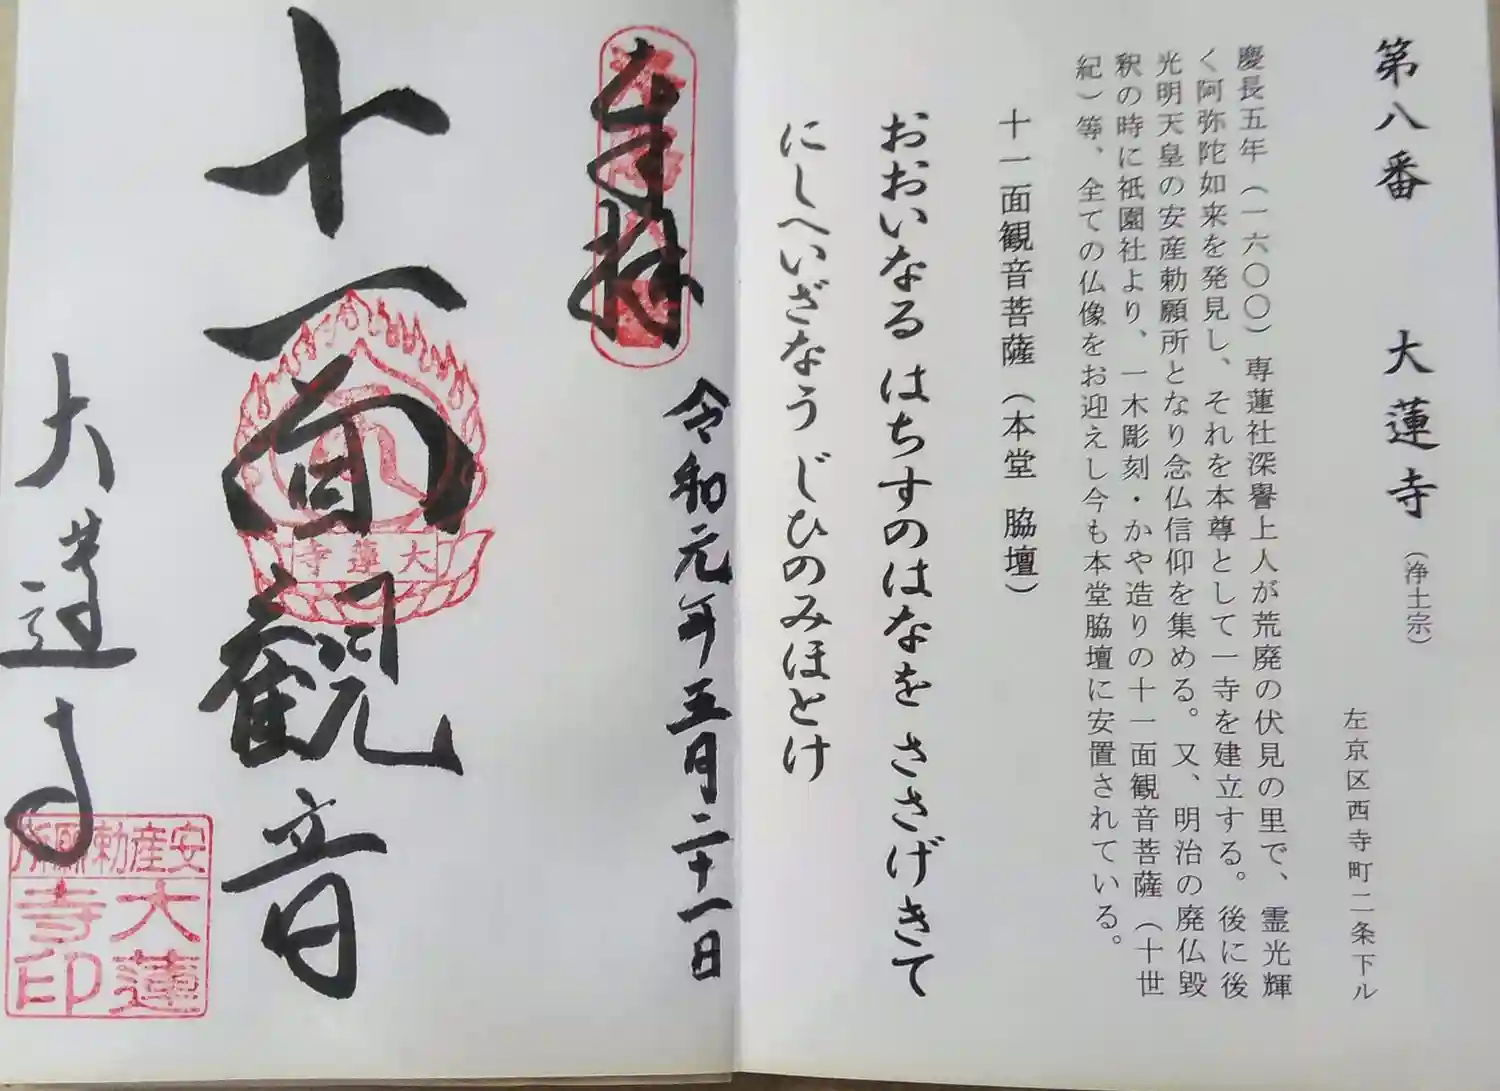 第八番 大蓮寺（浄土宗）
左京区西寺町二条下ル
慶長五年（一六〇〇）専蓮社深譽上人が荒廃の伏見の里で、霊光輝
く阿弥陀如来を発見し、それを本尊として一寺を建立する。後に後
光明天皇の安産勅願所となり念仏信仰を集める。又、明治の廃仏毀
釈の時に祇園社より、一木彫刻・かや造りの十一面観音菩薩（十世
紀）等、全ての仏像をお迎えし今も本堂脇壇に安置されている。
十一面観音菩薩（本堂 脇壇）
おおいなる はちすのはなを ささげきて
にしへいざなう じひのみほとけ
奉拝
令和元年三月二十一日
十一面観音
大蓮寺
大蓮寺
安産勅願所
大蓮
寺印